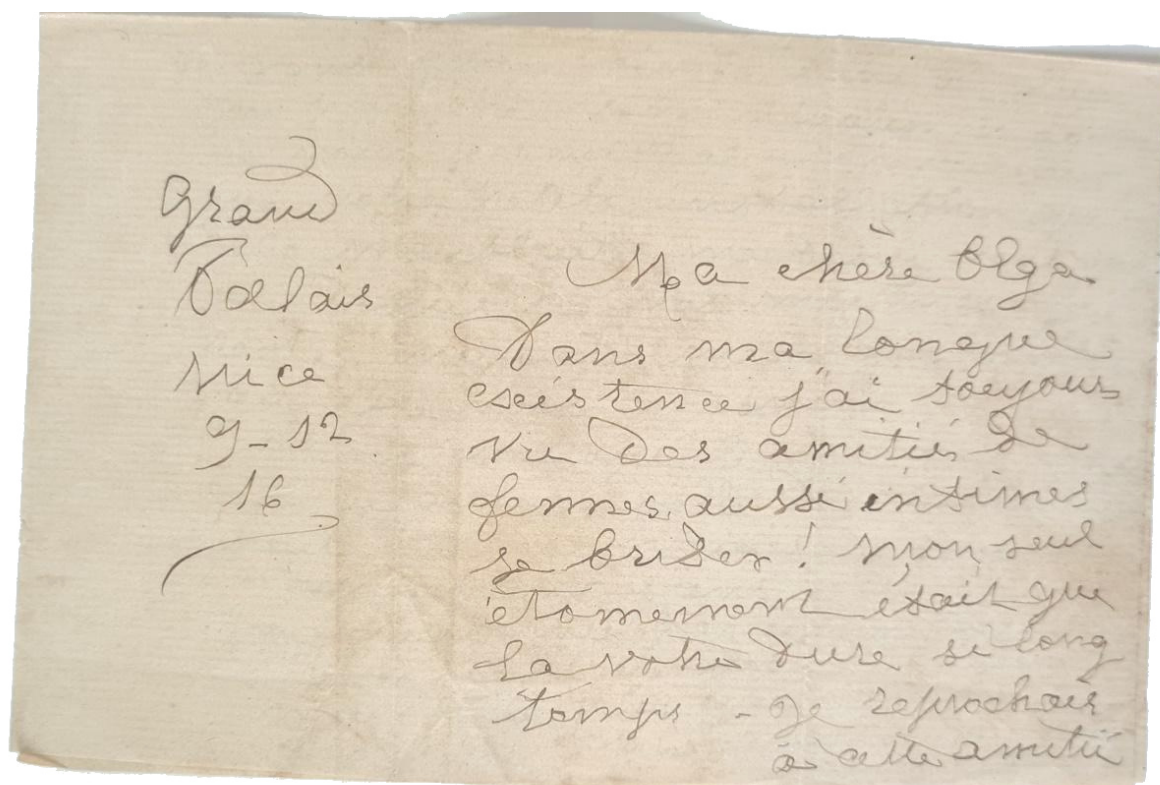 Grand
Palais
Nice
9-12
16
Ma chère Olga
Dans ma longue
existence j'ai toujours
vu des amitiés de
femmes aussi intimes
se briser ! Mon seul
étonnement était que
la votre dure si long
temps - Je reprochais
à cette amitié